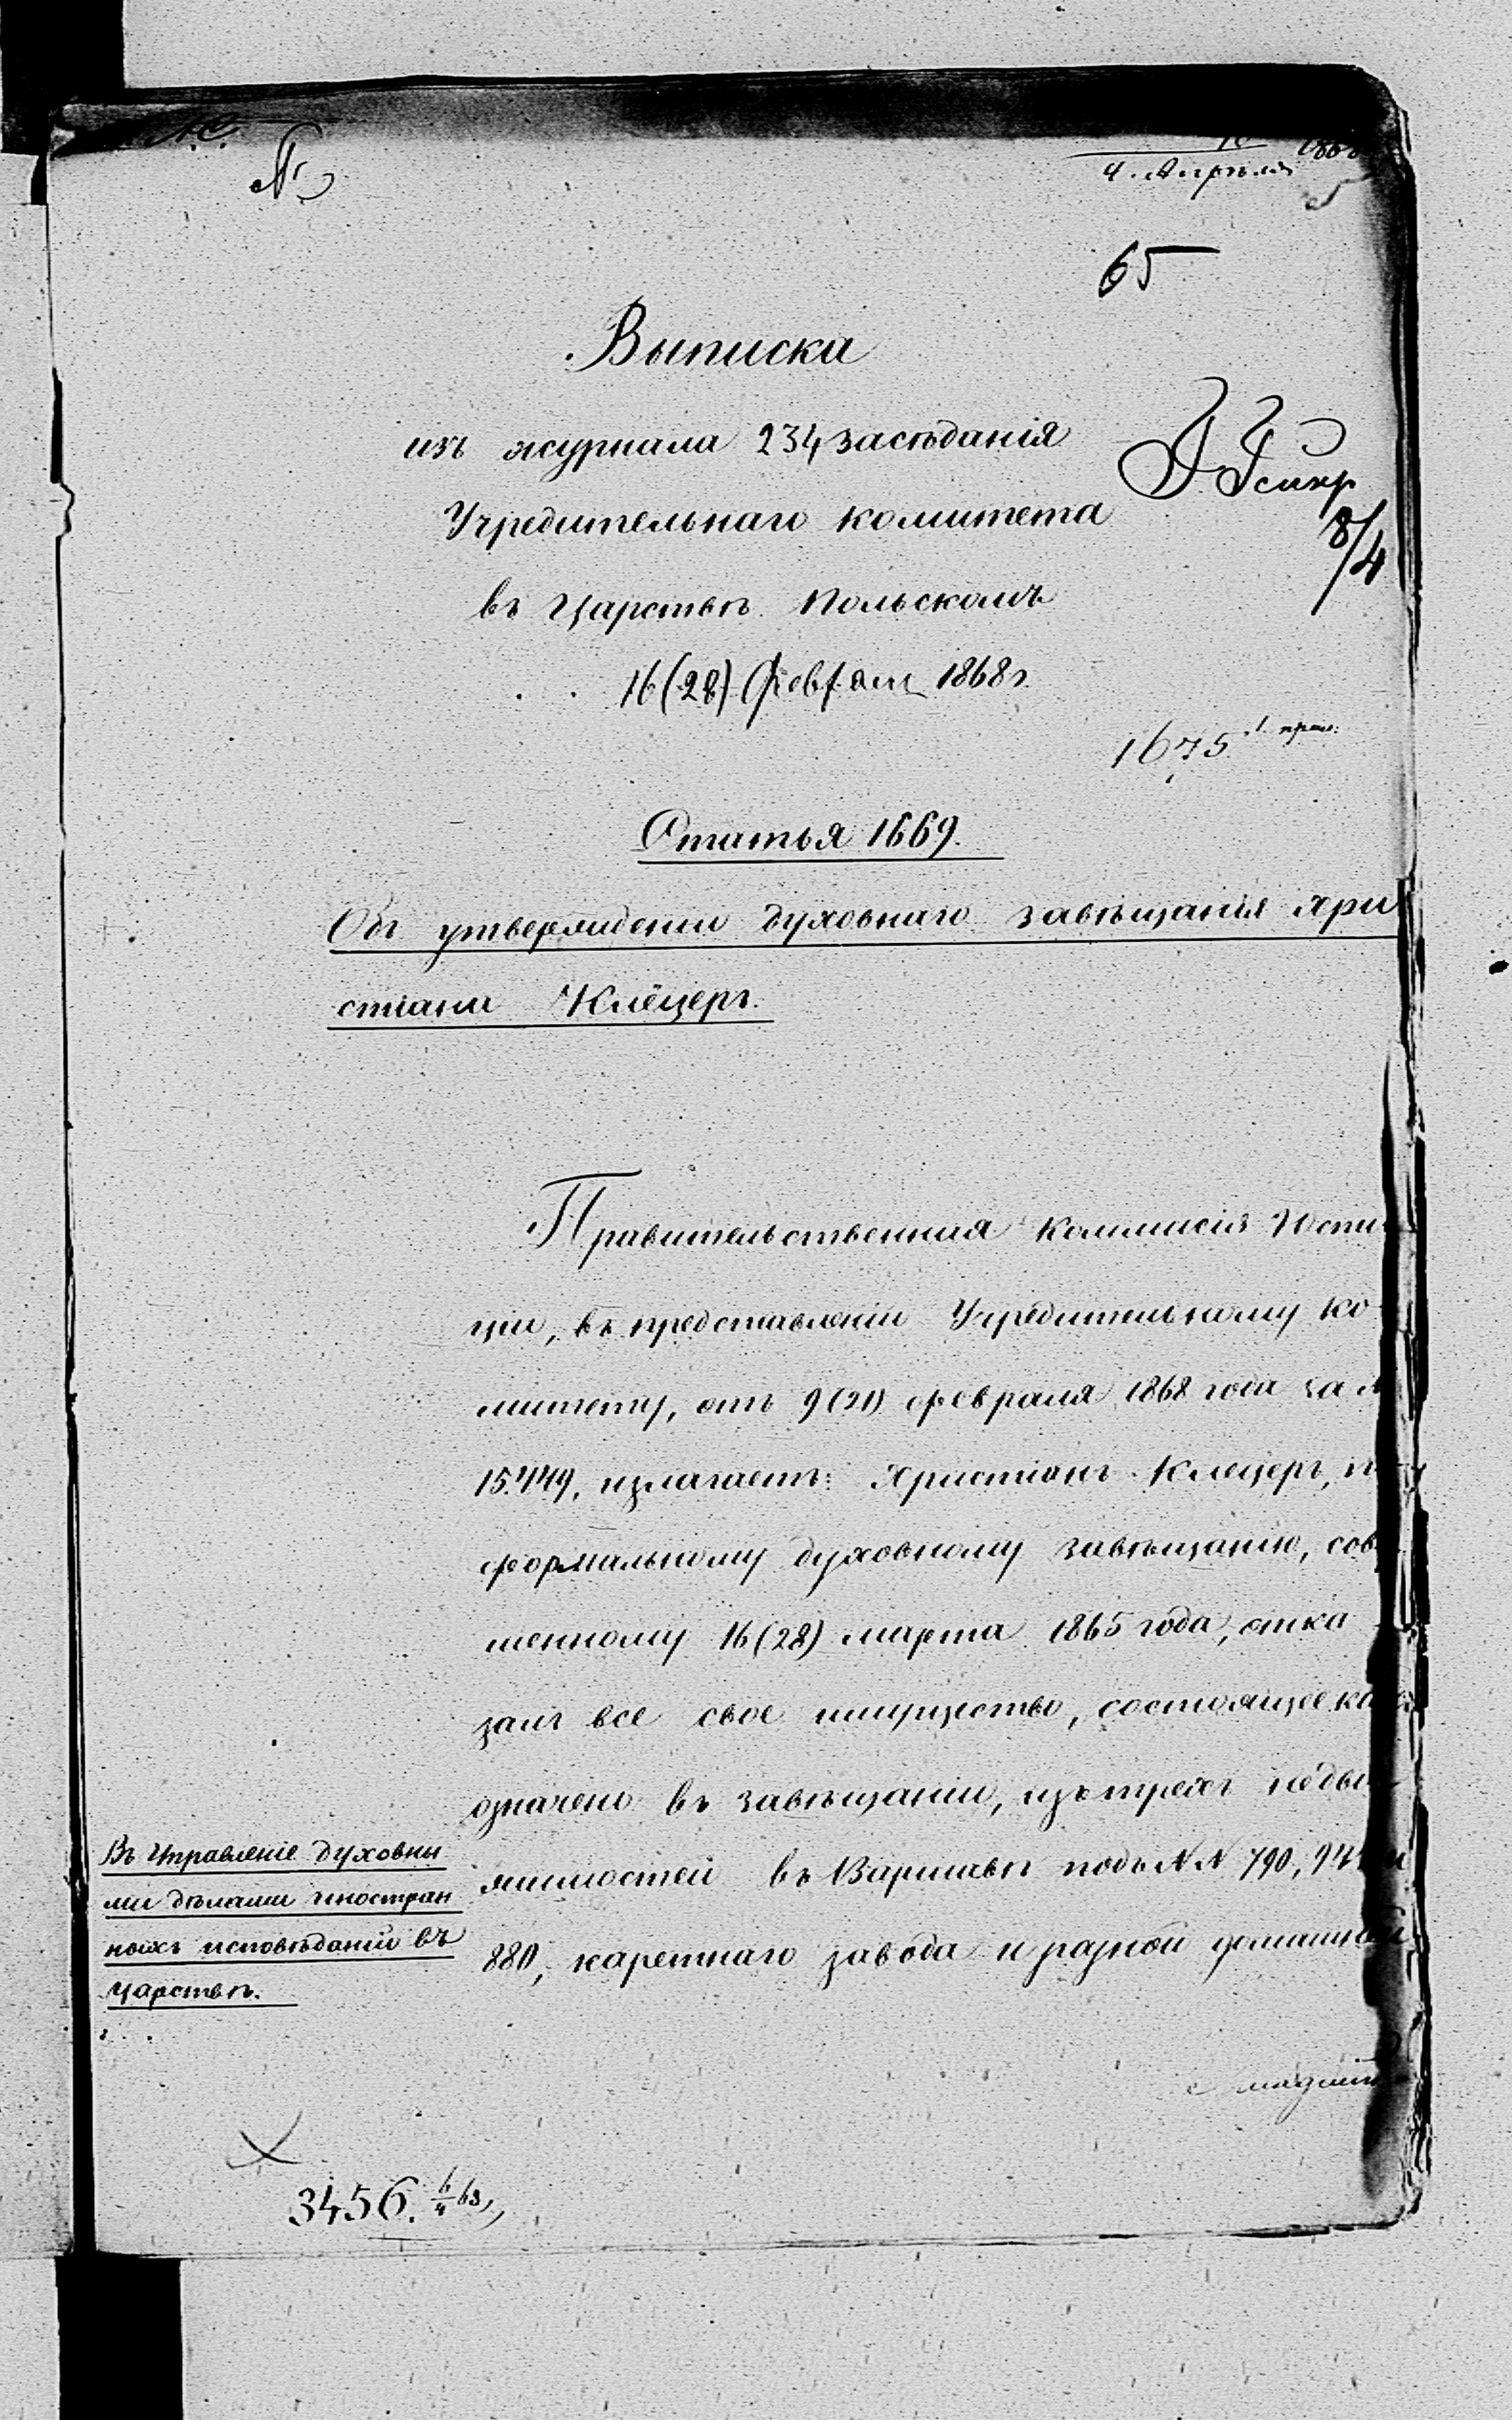 №
4. Апрѣля 1868
65
Выписка
изъ журнала 234 засѣданія
Учредительнаго комитета
въ Царствѣ Польскомъ
8/4
16 (28) Февраля 1868 г.
1675
Статья 1669.
Объ утвержденіи духовнаго завѣщанія Хри
стіана Клёцеръ.
Правительственная Коммисія Юсти
ціи, въ представленіи Учредительному Ко-
митету, отъ 9 (21) февраля 1868 года за №
15.449, излагаетъ: Христіанъ Клецеръ, по
формальному духовному завѣщанію, сов
шенному 16 (28) марта 1865 года, отка
залъ все свое имущество, состоящее какъ
означено въ завѣщаніи, изъ трехъ недви
жимостей въ Варшавѣ подъ N N 790,
880, каретнаго завода и разной домашней
Въ Управленіе духовны
ми дѣлами иностран
ныхъ исповѣданій въ
Царствѣ.
3456. 6/4 68